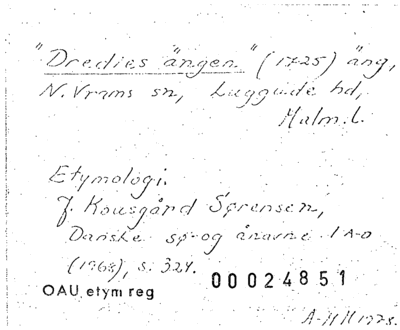 "Dredies ängen" (1725) äng,
N. Vrams sn, Luggude hd,
Malm. l.
Etymologi.
J. Kousgård Sørensen,
Danske sø- og ånavne 1 A-D
(1968), s. 324.
00024851
OAU etym reg
A-M H 1978.